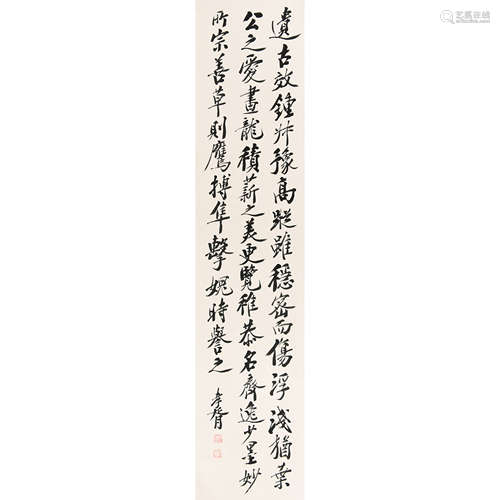 遺古效鍾艸豫高蹤雖穩密而傷浮淺猶葉
公之愛畫龍積薪之美更覽稚恭名齊逸少墨妙
所宗善草則鷹搏隼擊媿時譽之